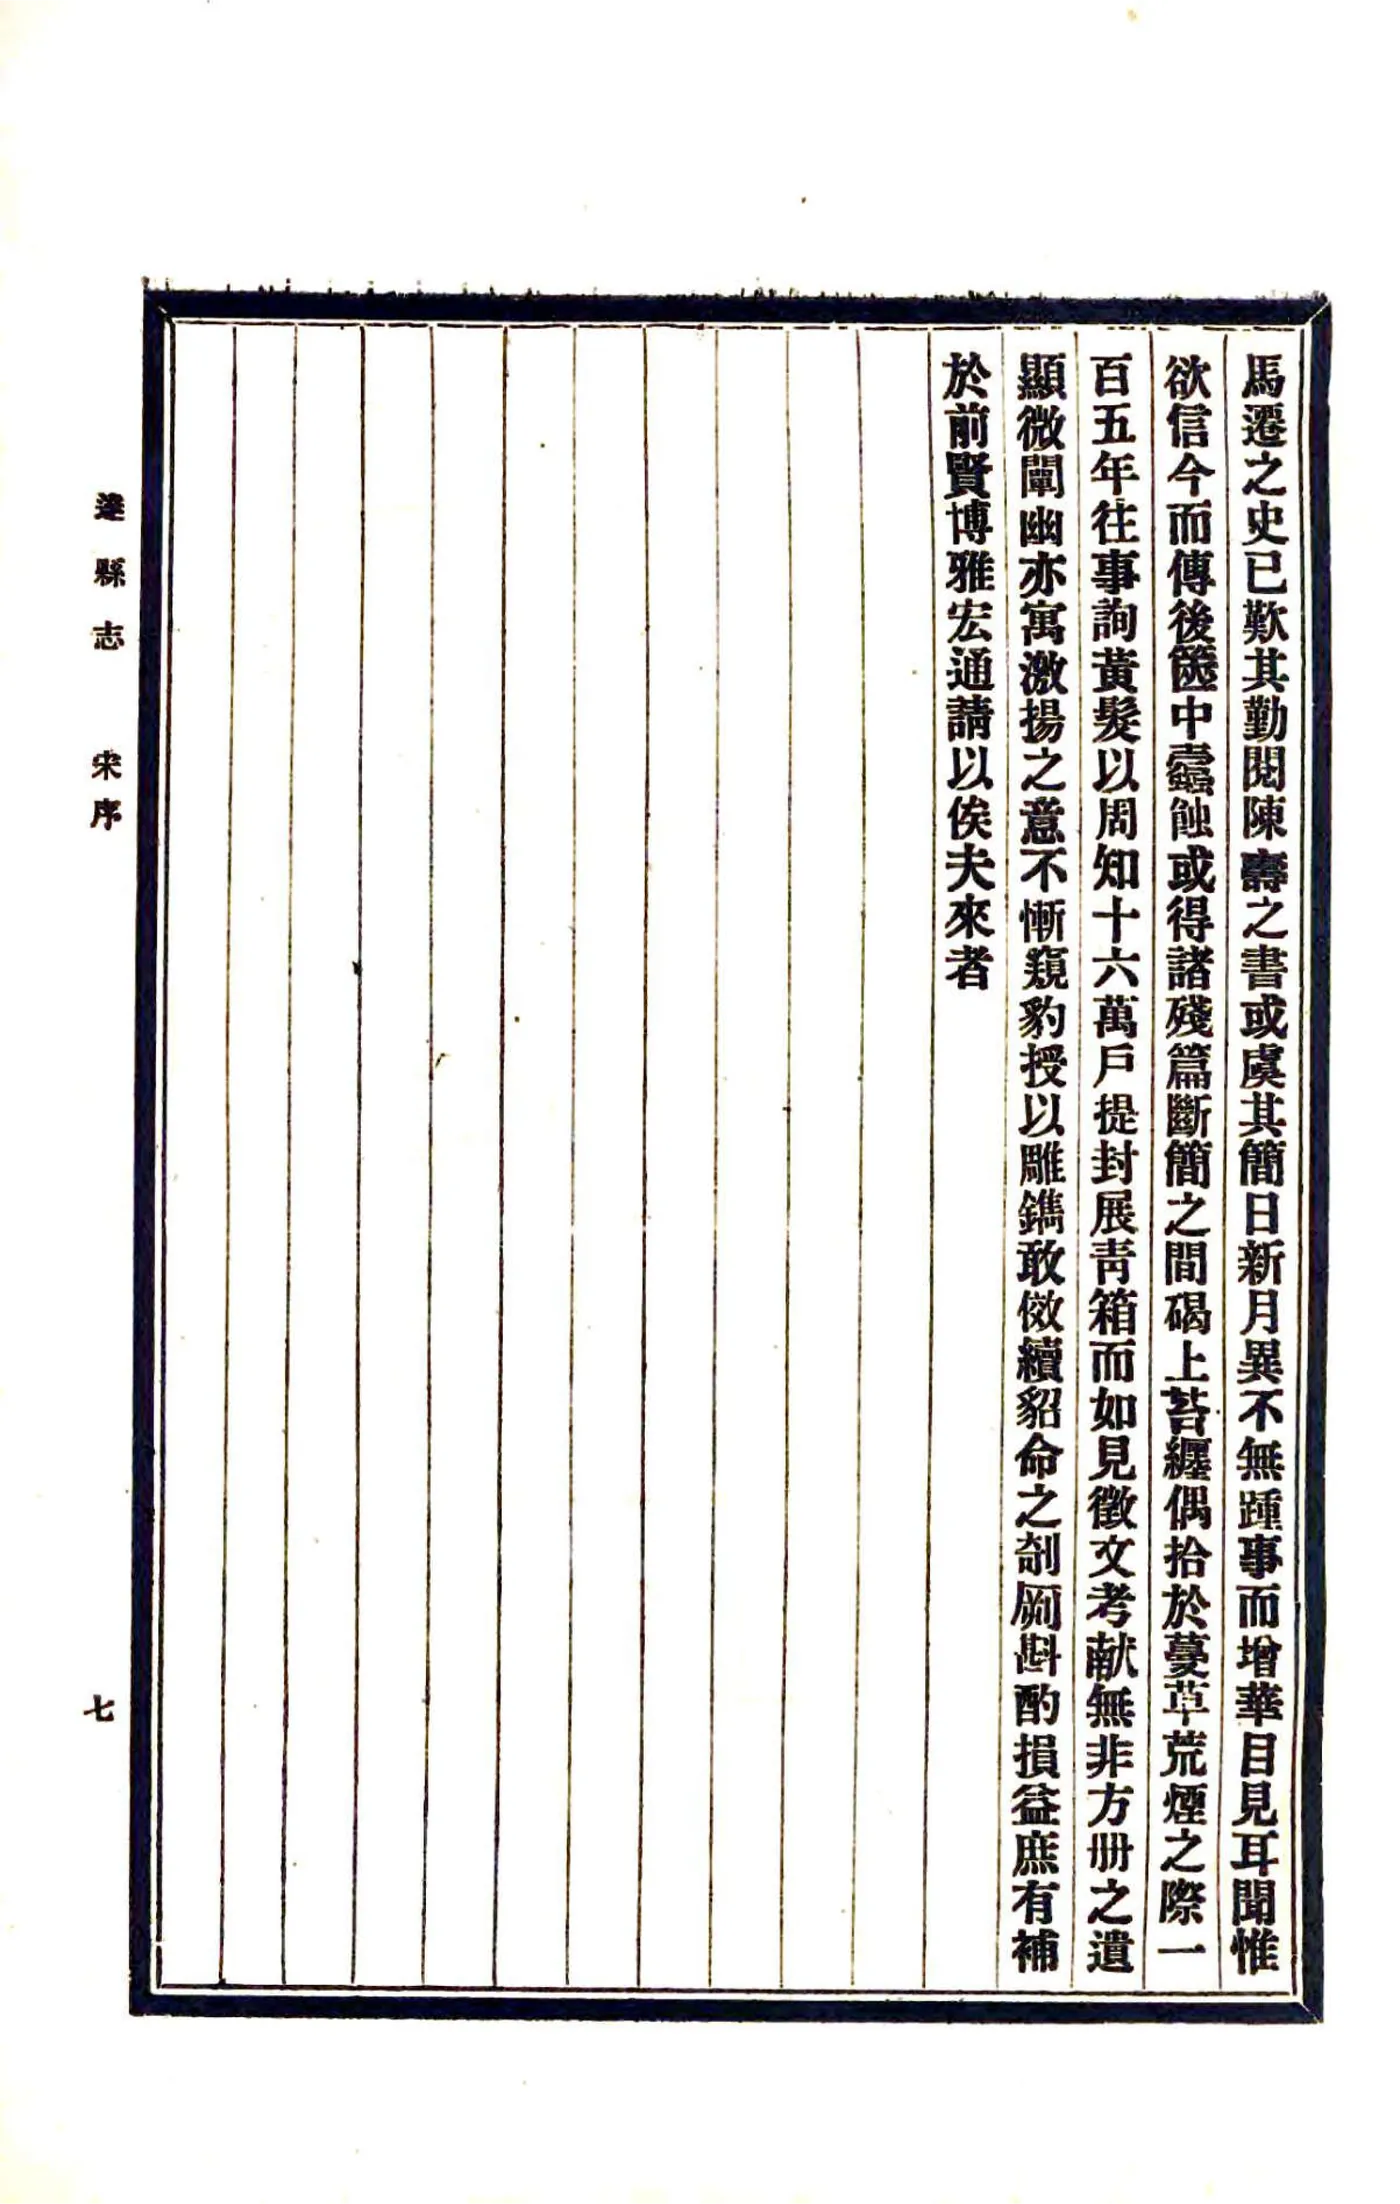 馬遷之史已歎其勤閱陳壽之書或虞其簡日新月異不無踵事而增華目見耳聞惟
欲信今而傳後篋中蠹蝕或得諸殘篇斷簡之間碣上苔纏偶拾於蔓草荒煙之際一
百五年往事詢黃髮以周知十六萬戶提封展青箱而如見徵文考献無非方册之遺
顯微闡幽亦寓激揚之意不慚窺豹授以雕鐫敢傚續貂命之剞劂斟酌損益庶有補
於前賢博雅宏通請以俟夫來者
達縣志 宋序
七